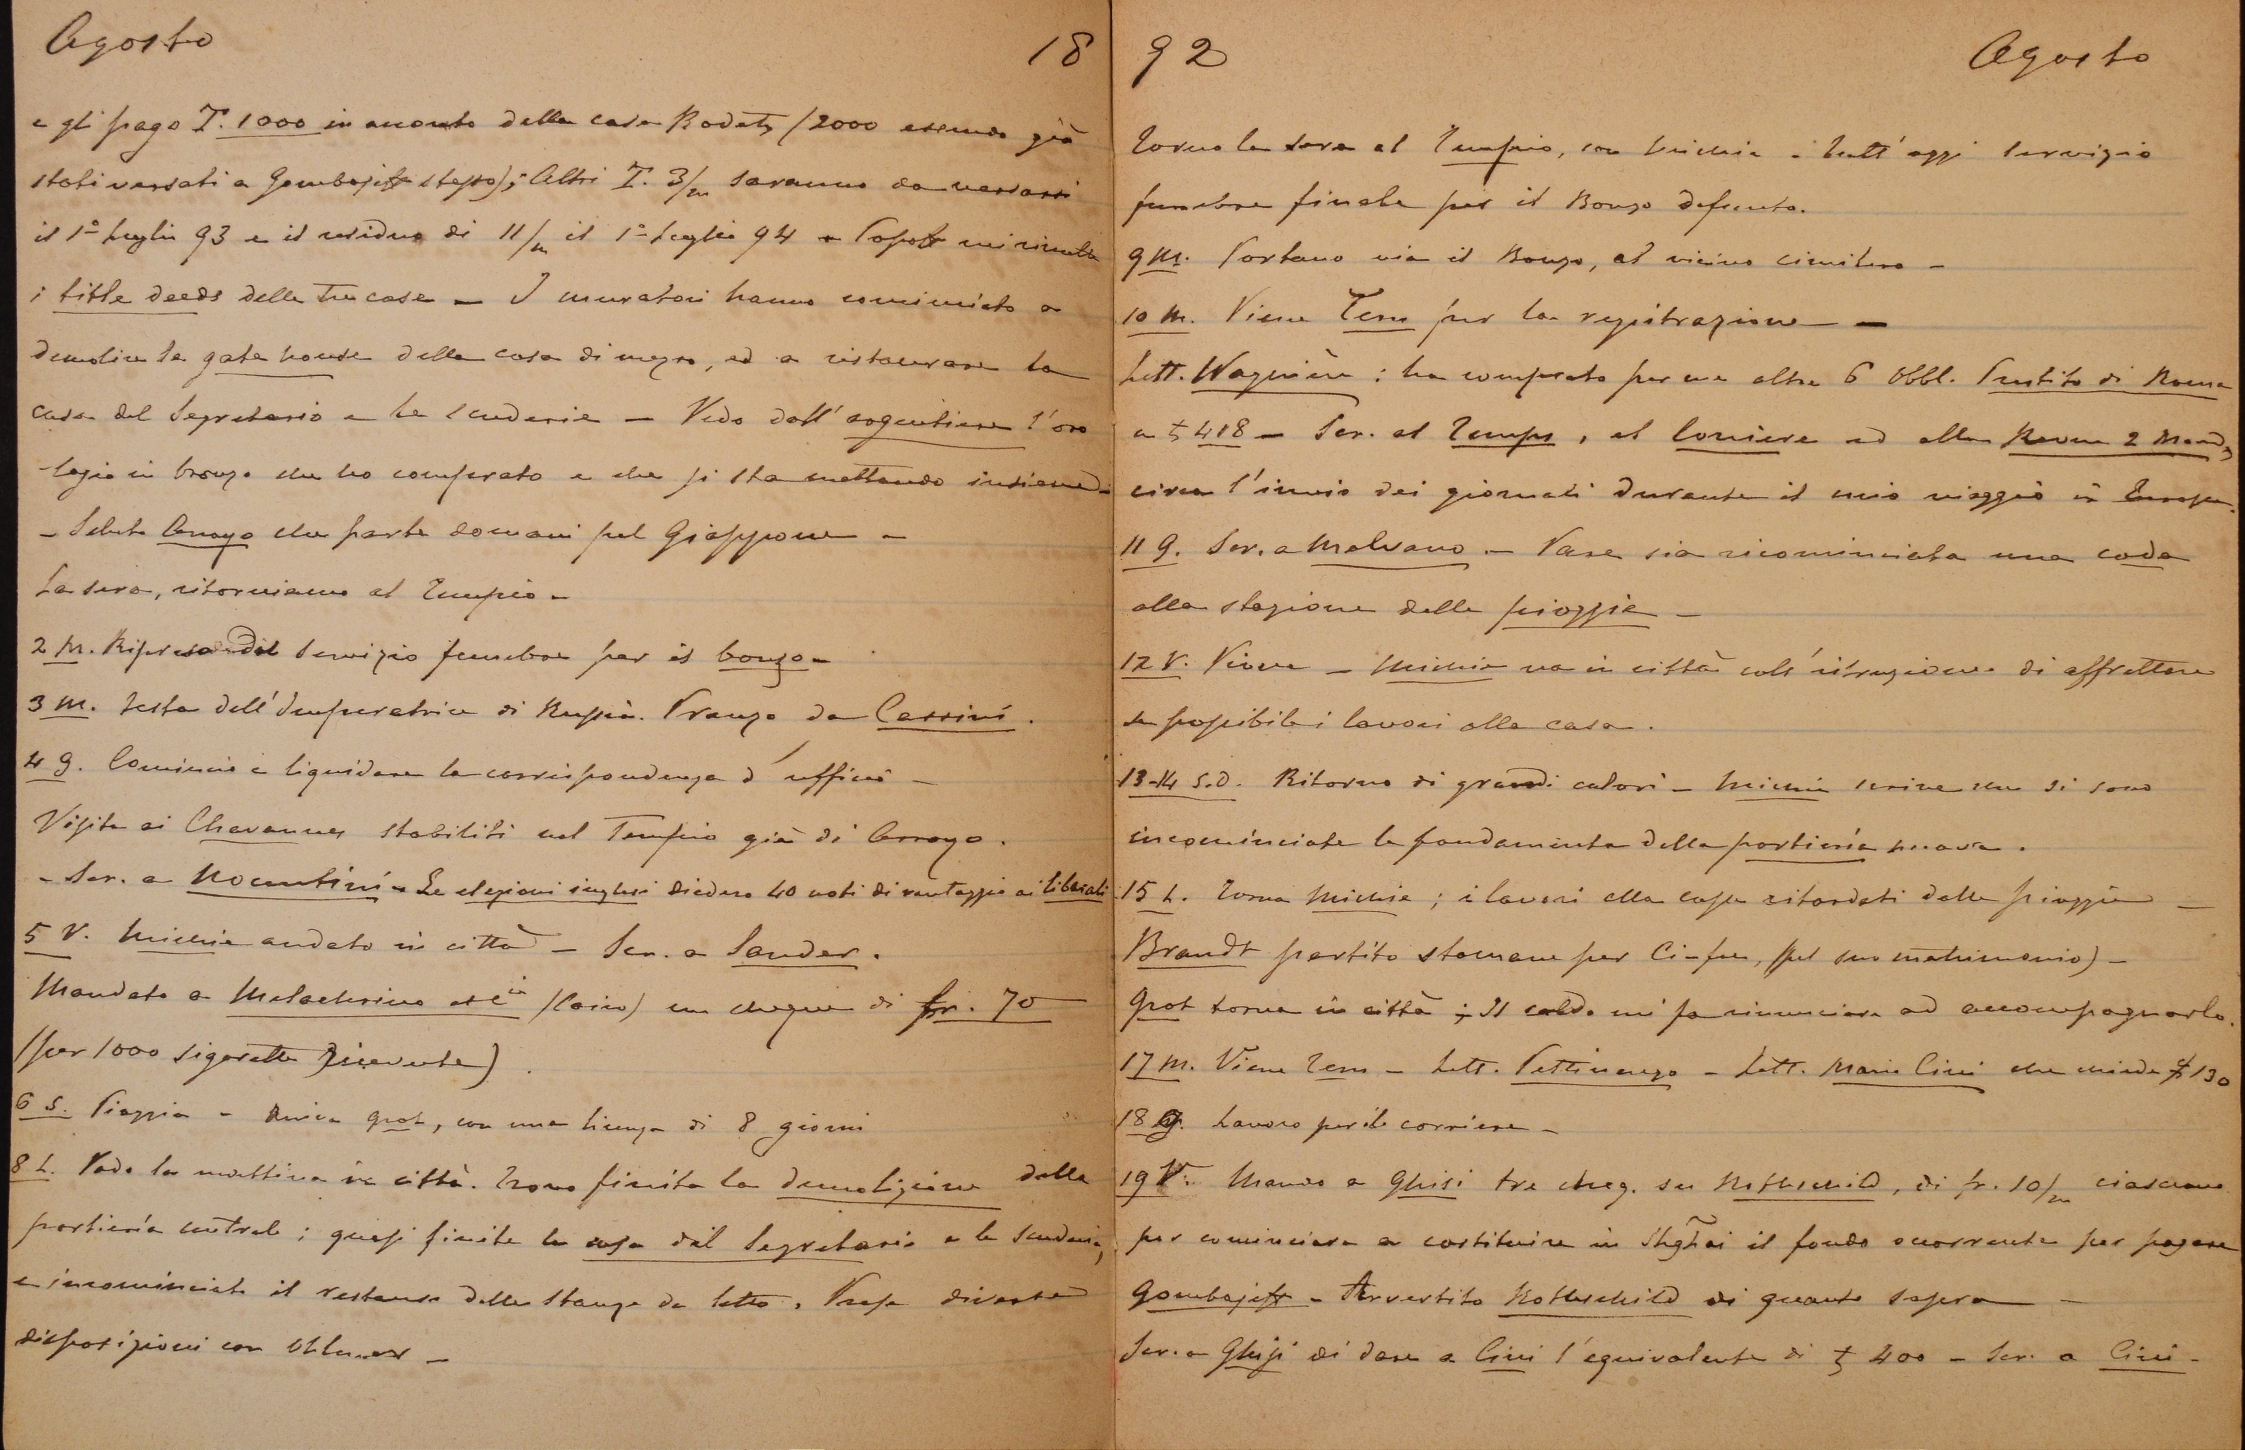 Agosto 18
e gli pago T. 1000 in acconto della casa Rodatz (2000 essendo già
stati versati a Gombojeff stesso); Altri T. 3/m saranno da versarsi
il 1° Luglio 93 e il residuo di 11/m il 1° Luglio 94 - Popoff mi rimette
i title deeds delle tre case - I muratori hanno cominciato a
demolire la gate house della casa di mezzo, ed a ristaurare la
casa del Segretario e le scuderie - Vedo dall'argentiere l'oro
logio in bronzo che ho comperato e che si sta mettendo insieme
- Saluto Arroyo che parte domani pel Giappone -
La sera, ritorniamo al Tempio -
2 M. Ripresa del servizio funebre per il bonzo -
3 M. Festa dell'Imperatrice di Russia. Pranzo da Cassini.
4 G. Comincio a liquidare la corrispondenza d'ufficio -
Visita ai Chavannes stabiliti nel Tempio già di Arroyo.
- Scr. a Nocentini - Le elezioni inglesi diedero 40 voti di vantaggio ai liberali
5 V. Michie andato in città - Scr. a Sander.
Mandato a Melachrino et Cie (Cairo) un chèque di fr. 70
(per 1000 sigarette ricevute)
6 S. Pioggia - Arriva Grot, con una licenza di 8 giorni
8 L. Vado la mattina in città. Trovo finita la demolizione della
portieria centrale; quasi finite la casa del Segretario e le scuderie,
e incominciato il restauro delle stanze da letto. Prese diverse
disposizioni con
92 Agosto
Torno la sera al Tempio, con Michie - Tutt'oggi servizio
funebre finale per il Bonzo defunto.
9 M. Portano via il Bonzo, al vicino cimitero -
10 M. Viene Tern per la registrazione -
Lett. Wagnière: ha comprato per me altre 6 Obbl. Prestito di Roma
a £ 418 - Scr. al Temps, al Corriere ed alla Revue 2 Mondes
circa l'invio dei giornali durante il mio viaggio in Europa.
11 G. Scr. a Malvano - Pare sia ricominciata una coda
alla stagione delle pioggie -
12 V. Piove - Michie va in città coll'istruzione di affrettare
se possibile i lavori alla casa.
13-14 S.D. Ritorno di grandi calori - Michie scrive che si sono
incominciate le fondamenta della portieria nuova.
15 L. Torna Michie; i lavori alla casa ritardati dalle pioggie -
Brandt partito stamane per Ci-fu, (pel suo matrimonio) -
Grot torna in città; Il caldo mi fa rinunciare ad accompagnarlo.
17 M. Viene Tern - Lett. Pettinengo - Lett. Marie Cini che chiede £ 130
18 G. Lavoro per il corriere -
19 V. Mando a Ghisi tre cheq. su Rothschild, di fr. 10/m ciascuno
per cominciare a costituire in Shghai il fondo occorrente per pagare
Gombojeff - Avvertito Rothschild di quanto sopra -
Scr. a Ghisi di dare a Cini l'equivalente di £ 400 - Scr. a Cini -